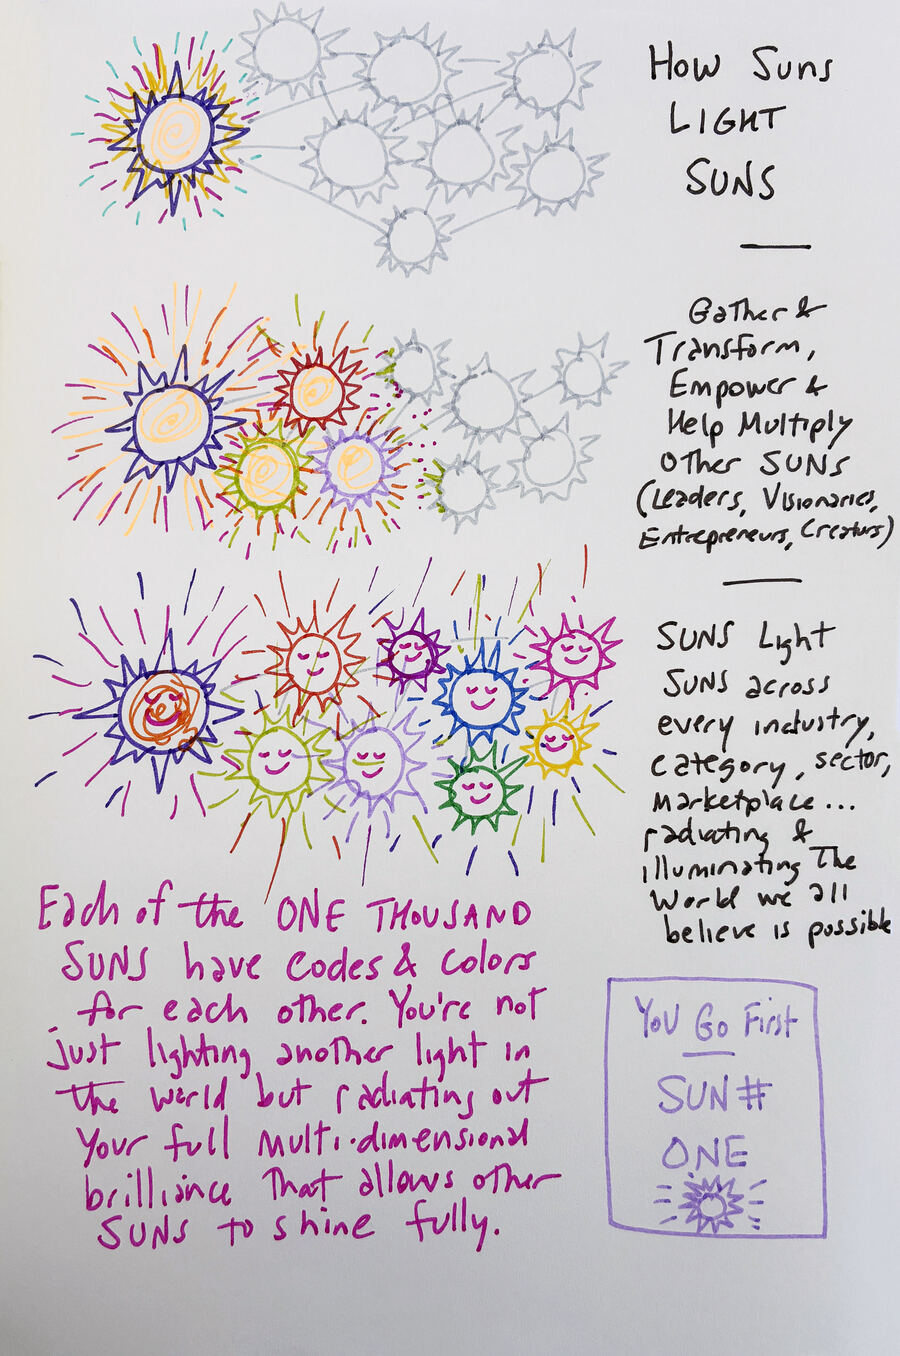 How Suns
LIGHT
SUNS
Gather &
Transform,
Empower &
Help Multiply
Other SUNS
(Leaders, Visionaries,
Entrepreneurs, Creators)
SUNS Light
SUNS across
every industry,
category, sector,
marketplace...
radiating &
illuminating The
World we all
believe is possible
Each of the ONE THOUSAND
SUNS have codes & colors
for each other. You're not
just lighting another light in
the world but radiating out
your full multi-dimensional
brilliance that allows other
SUNS to shine fully.
YOU Go First
SUN#
ONE